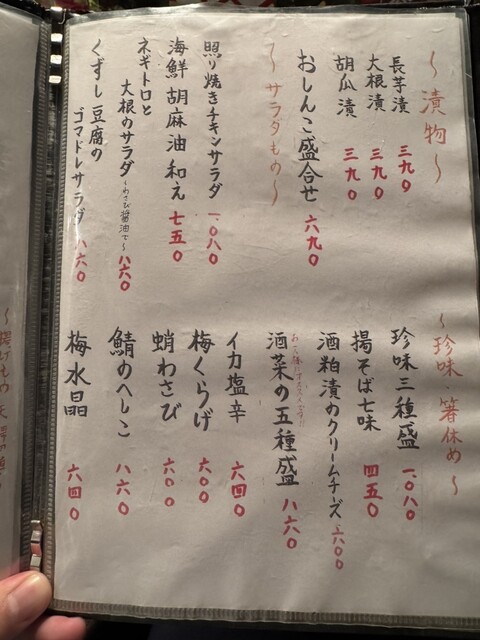 〜漬物〜
長芋漬 三九〇
大根漬 三九〇
胡瓜漬 三九〇
おしんこ盛合せ 六九〇
〜サラダもの〜
照り焼きチキンサラダ 一、〇八〇
海鮮胡麻油和え 七五〇
ネギトロと
大根のサラダ〜わさび醤油で〜 八六〇
くずし豆腐の
ゴマドレサラダ 八六〇
〜珍味・箸休め〜
珍味三種盛 一、〇八〇
揚そば七味 四五〇
酒粕漬のクリームチーズ 六〇〇
酒菜の五種盛 八六〇
イカ塩辛 六四〇
梅くらげ 六〇〇
蛸わさび 六〇〇
鯖のへしこ 八六〇
梅水晶 六四〇